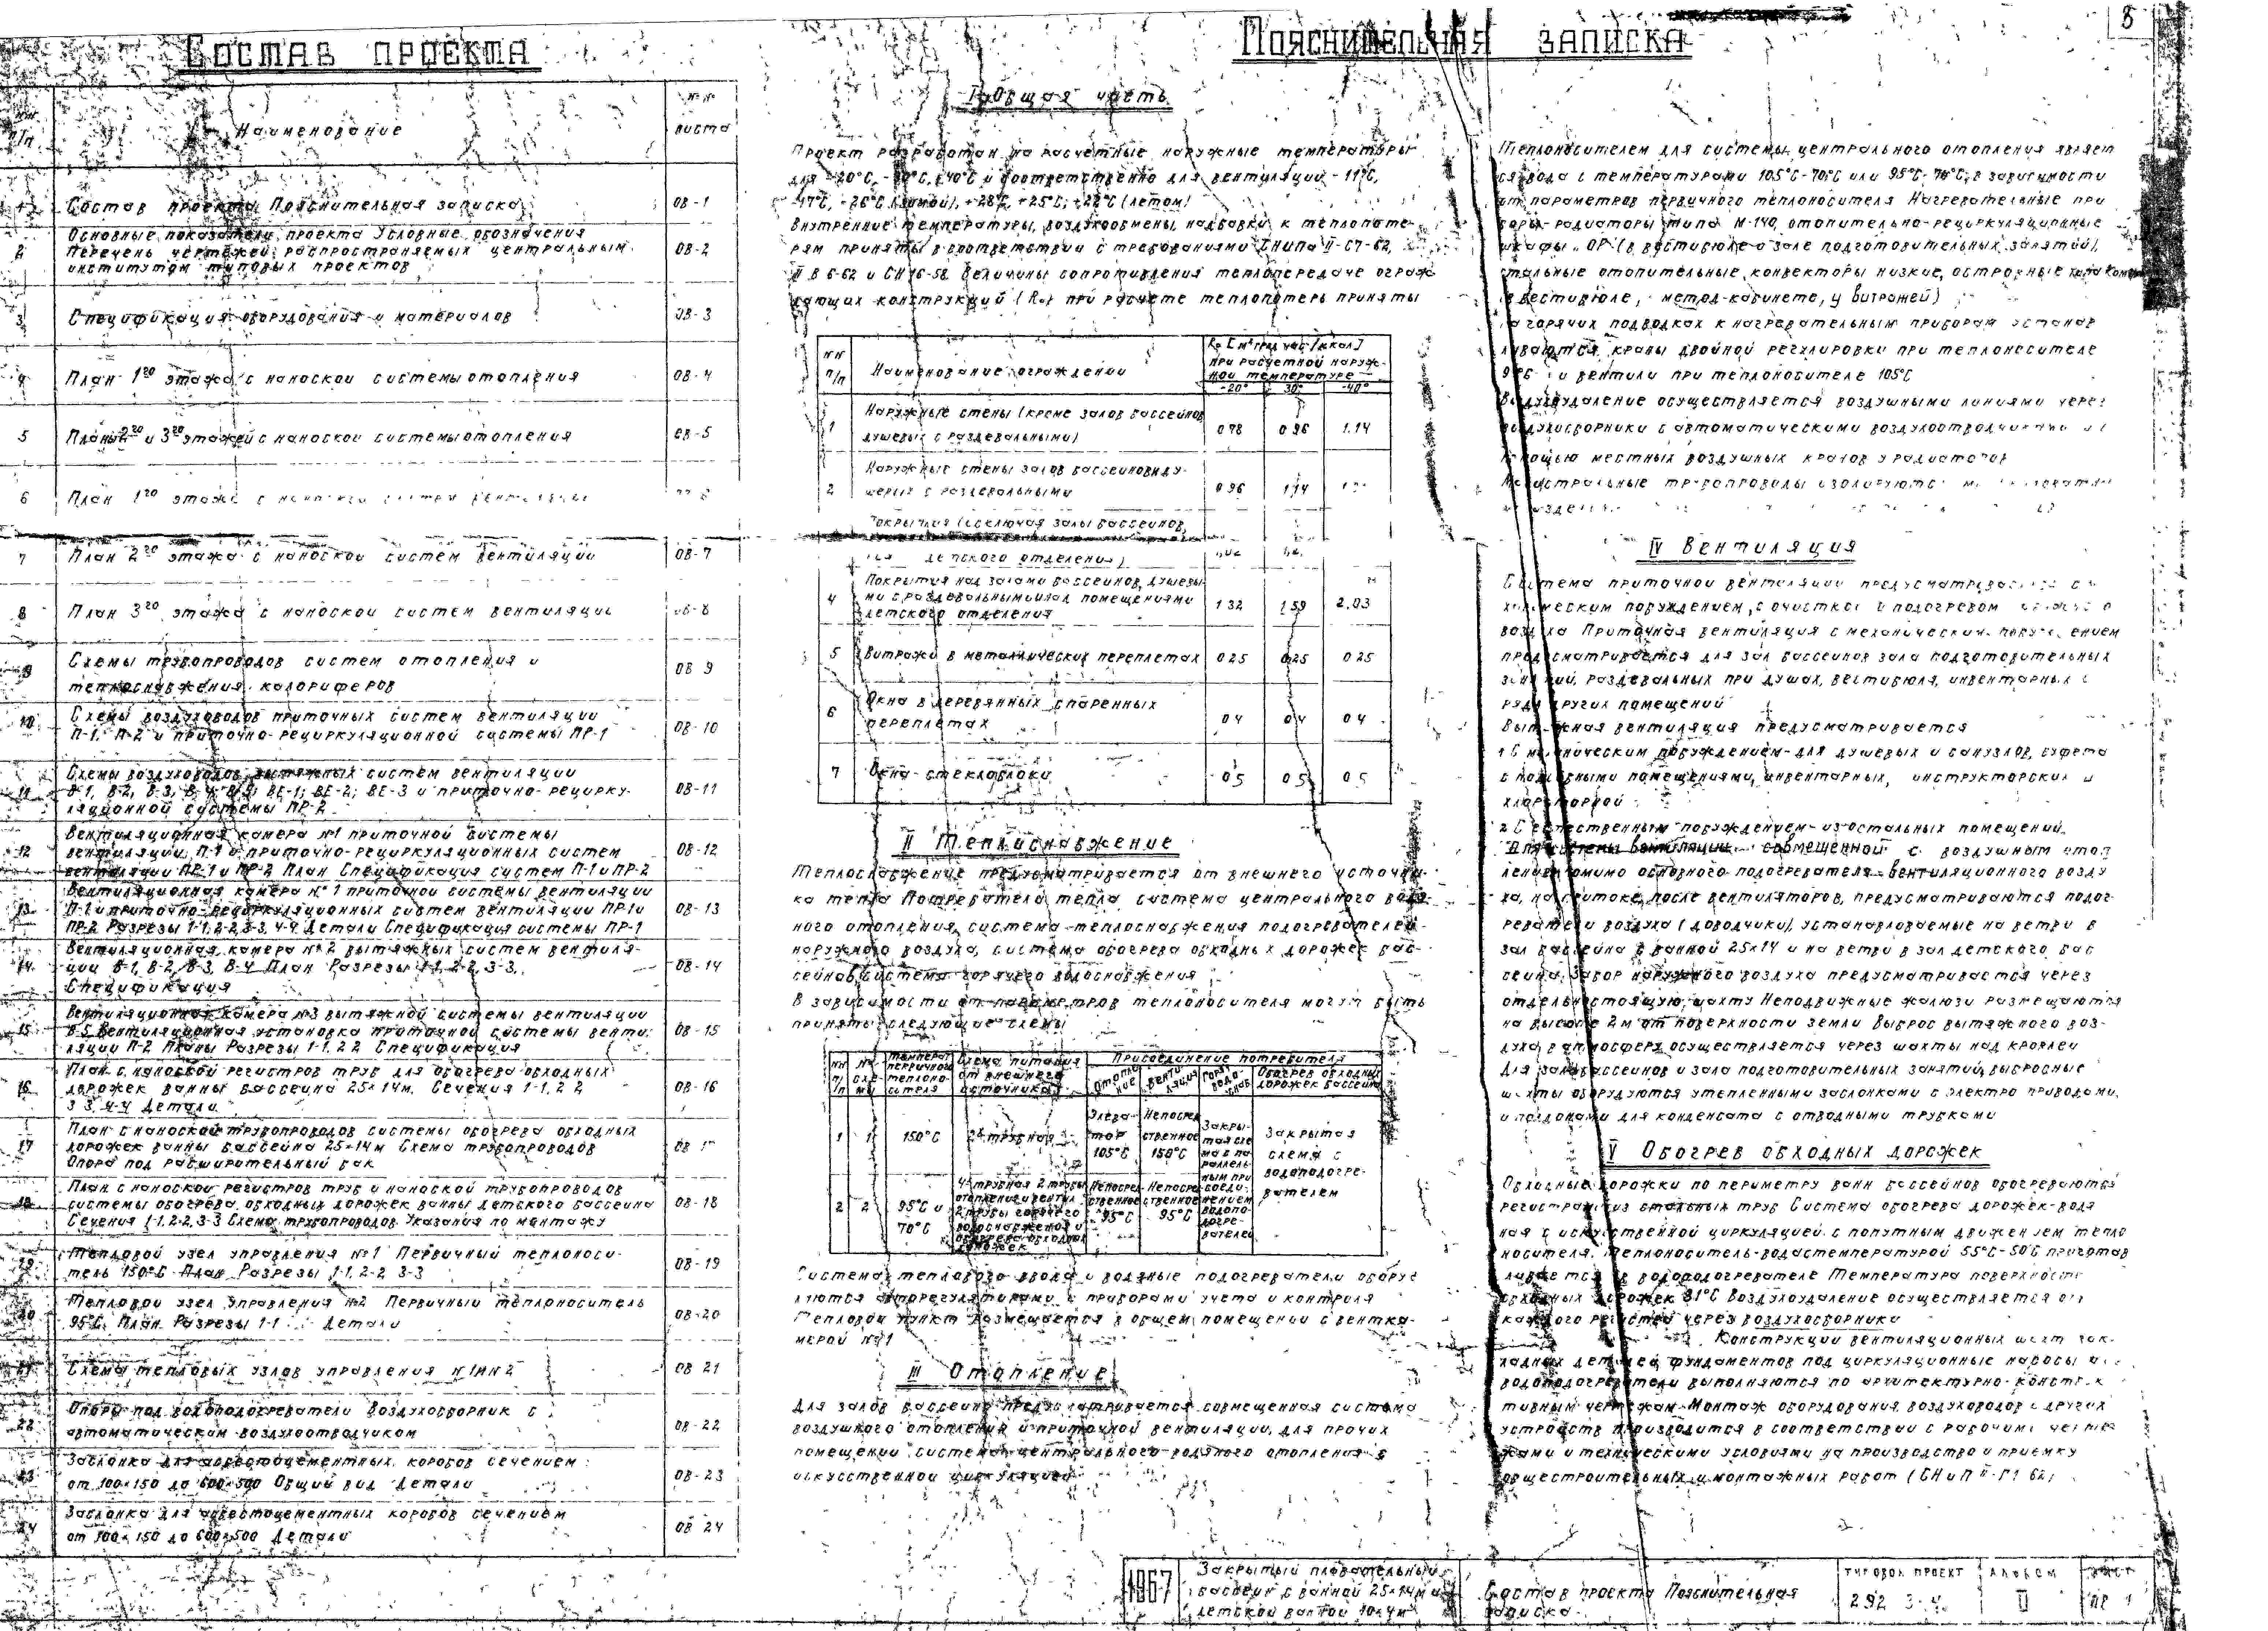 Состав проекта
№№ п/п
Наименование
№№ листа
1 Состав проекта Пояснительная записка ОВ-1
2 Основные показатели проекта Условные обозначения
Перечень чертежей, распространяемых центральным ОВ-2
институтом типовых проектов
3 Спецификация оборудования и материалов ОВ-3
4 План 1го этажа с наноской системы отопления ОВ-4
5 Планы 2го и 3го этажей с наноской системы отопления ОВ-5
6 План 1го этажа с
7 План 2го этажа с наноской систем вентиляции ОВ-7
8 План 3го этажа с наноской систем вентиляции ОВ-8
9 Схемы трубопроводов систем отопления и ОВ 9
теплоснабжения калориферов
10 Схемы воздуховодов приточных систем вентиляции
П-1, П-2 и приточно-рециркуляционной системы ПР-1 ОВ-10
11 Схемы воздуховодов вытяжных систем вентиляции
В-1, В-2, В-3, В-4, В-5, ВЕ-1; ВЕ-2; ВЕ-3 и приточно-рецирку- ОВ-11
ляционной системы ПР-2
12 Вентиляционная камера №1 приточной системы
вентиляции П-1 и приточно-рециркуляционных систем ОВ-12
вентиляции ПР-1 и ПР-2 План Спецификация систем П-1 и ПР-2
13 Вентиляционная камера №1 приточной системы вентиляции
П-1 и приточно-рециркуляционных систем вентиляции ПР-1 и ОВ-13
ПР-2 Разрезы 1-1, 2-2, 3-3, 4-4 Детали Спецификация системы ПР-1
14 Вентиляционная камера №2 вытяжных систем вентиля-
ции В-1, В-2, В-3, В-4 План Разрезы 1-1, 2-2, 3-3, ОВ-14
Спецификация
15 Вентиляционная камера №3 вытяжной системы вентиляции
В-5 Вентиляционная установка приточной системы венти- ОВ-15
ляции П-2 Планы Разрезы 1-1, 2 2 Спецификация
16 План с наноской регистров труб для обогрева обходных
дорожек ванны бассейна 25×14м. Сечения 1-1, 2 2 ОВ-16
3 3, 4-4 Детали
17 План с наноской трубопроводов системы обогрева обходных
дорожек ванны бассейна 25×14м Схема трубопроводов ОВ 17
Опора под расширительный бак
18 План с наноской регистров труб и наноской трубопроводов
системы обогрева обходных дорожек ванны детского бассейна ОВ-18
Сечения 1-1, 2-2, 3-3 Схема трубопроводов Указания по монтажу
19 Тепловой узел управления №1 Первичный теплоноси-
тель 150°С План Разрезы 1-1, 2-2 3-3 ОВ-19
20 Тепловой узел управления №2 Первичный теплоноситель
95°С. План Разрезы 1-1 Детали ОВ-20
21 Схема тепловых узлов управления №1 и №2 ОВ 21
22 Опоры под водоподогреватели Воздухосборник с
автоматическим воздухоотводчиком ОВ-22
23 Заслонка для асбестоцементных коробов сечением
от 100×150 до 600×500 Общий вид Детали ОВ-23
24 Заслонка для асбестоцементных коробов сечением
от 100×150 до 600×500 Детали ОВ 24
Пояснительная записка
8
I Общая часть
Проект разработан на расчетные наружные температуры
для -20°С, -30°С, -40°С и соответственно для вентиляции -11°С,
-17°С, -26°С (зимой), +28°С, +25°С, +22°С (летом)
Внутренние температуры, воздухообмены, надбавки к теплопоте-
рям приняты в соответствии с требованиями СНиПа II-
II В 6-62 и СН 46-58 Величины сопротивления теплопередаче ограж-
дающих конструкций (Ro) при расчете теплопотерь приняты
№№ п/п
Наименование ограждений
Ro [м² град час/ккал]
при расчетной наруж-
ной температуре
-20° -30° -40°
1 Наружные стены (кроме залов бассейнов,
душевых с раздевальными) 0 78 0 96 1.14
2 Наружные стены залов бассейнов и ду-
шевых с раздевальными 0 96 1,14
Покрытия (исключая залы бассейнов,
детского отделения)
4 Покрытия над залами бассейнов, душевы-
ми с раздевальными и над помещениями 1 32 1 59 2.03
детского отделения
5 Витражи в металлических переплетах 0 25 0,25 0 25
6 Окна в деревянных спаренных
переплетах 0 4 0 4 0 4
7 Окна - стеклоблоки 0 5 0 5 0 5
II Теплоснабжение
Теплоснабжение предусматривается от внешнего источни-
ка тепла Потребители тепла, система центрального водя-
ного отопления, система теплоснабжения подогревателей
наружного воздуха, система обогрева обходных дорожек бас-
сейнов, система горячего водоснабжения
В зависимости от параметров теплоносителя могут быть
приняты следующие схемы
№№ п/п
№ схе-мы
Температ. первичного теплоно-сителя
Схема питания от внешнего источника
Присоединение потребителя
Отопле-ние
Венти-ляция
Горяч. водо-снаб
Обогрев обходных дорожек бассейна
1 1 150°С 2х трубная
Элева-тор 105°С
Непосред-ственное 150°С
Закры-тая схе-ма с па-раллель-ным при-соеди-нением водопо-догре-вателей
Закрытая схема с водоподогре-вателем
2 2 95°С и 70°С
4х трубная 2 трубы отопление и вентил. 2 трубы горячего водоснабжения и обогрева обходных дорожек
Непосред-ственное 95°С
Непосред-ственное 95°С
Система теплового ввода и водяные подогреватели оборуд
ляются авторегуляторами и приборами учета и контроля
Тепловой пункт размещается в общем помещении с вентка-
мерой №1
III Отопление
Для залов бассейна предусматривается совмещенная система
воздушного отопления и приточной вентиляции, для прочих
помещений система центрального водяного отопления с
искусственной циркуляцией
Теплоносителем для системы центрального отопления являет
ся вода с температурами 105°С-70°С или 95°С-70°С, в зависимости
от параметров первичного теплоносителя Нагревательные при
боры-радиаторы типа М-140, отопительно-рециркуляционные
шкафы „ОР" (в вестибюле и зале подготовительных занятий),
стальные отопительные конвекторы низкие, островные типа
(в вестибюле, метод-кабинете, у витражей)
На горячих подводках к нагревательным приборам устанав
ливаются краны двойной регулировки при теплоносителе
95°С и вентили при теплоносителе 105°С
Воздухоудаление осуществляется воздушными линиями через
воздухосборники с автоматическими воздухоотводчиками и с
помощью местных воздушных кранов у радиаторов
Магистральные трубопроводы изолируются
IV Вентиляция
Система приточной вентиляции предусматривается с
механическим побуждением, с очисткой и подогревом
воздуха Приточная вентиляция с механическим побуждением
предусматривается для зал бассейнов зала подготовительных
занятий, раздевальных при душах, вестибюля, инвентарных и
ряда других помещений
Вытяжная вентиляция предусматривается
1 С механическим побуждением - для душевых и санузлов, буфета
с подсобными помещениями, инвентарных, инструкторских и
хлораторной
2 С естественным побуждением - из остальных помещений.
Для системы вентиляции совмещенной с воздушным отоп
лением помимо основного подогревателя вентиляционного возду
ха, на притоке, после вентиляторов, предусматриваются подог-
реватели воздуха (доводчики), устанавливаемые на ветви в
зал бассейна с ванной 25×14 и на ветви в зал детского бас
сейна. Забор наружного воздуха предусматривается через
отдельностоящую шахту Неподвижные жалюзи размещаются
на высоте 2м от поверхности земли Выброс вытяжного воз-
духа в атмосферу осуществляется через шахты над кровлей
Для зала бассейнов и зала подготовительных занятий, выбросные
шахты оборудуются утепленными заслонками с электро приводами,
и поддонами для конденсата с отводными трубками
V Обогрев обходных дорожек
Обходные дорожки по периметру ванн бассейнов обогреваются
регистрами из стальных труб Система обогрева дорожек-водя
ная с искусственной циркуляцией с попутным движением тепло
носителя. Теплоноситель-вода с температурой 55°С-50°С приготав
ливается в водоподогревателе Температура поверхности
обходных дорожек 31°С Воздухоудаление осуществляется от
каждого регистра через воздухосборники
Конструкции вентиляционных шахт зак-
ладных деталей фундаментов под циркуляционные насосы и
водоподогреватели выполняются по архитектурно-констр
тивным чертежам Монтаж оборудования, воздуховодов и других
устройств производится в соответствии с рабочими черте
жами и техническими условиями на производство и приемку
общестроительных и монтажных работ (СНиП II-Г1 62)
1967
Закрытый плавательный
бассейн с ванной 25×14м и
детской ванной 10×4м
Состав проекта Пояснительная
записка
Типовой проект
292 3-4
Альбом
II
Лист
ОВ 1